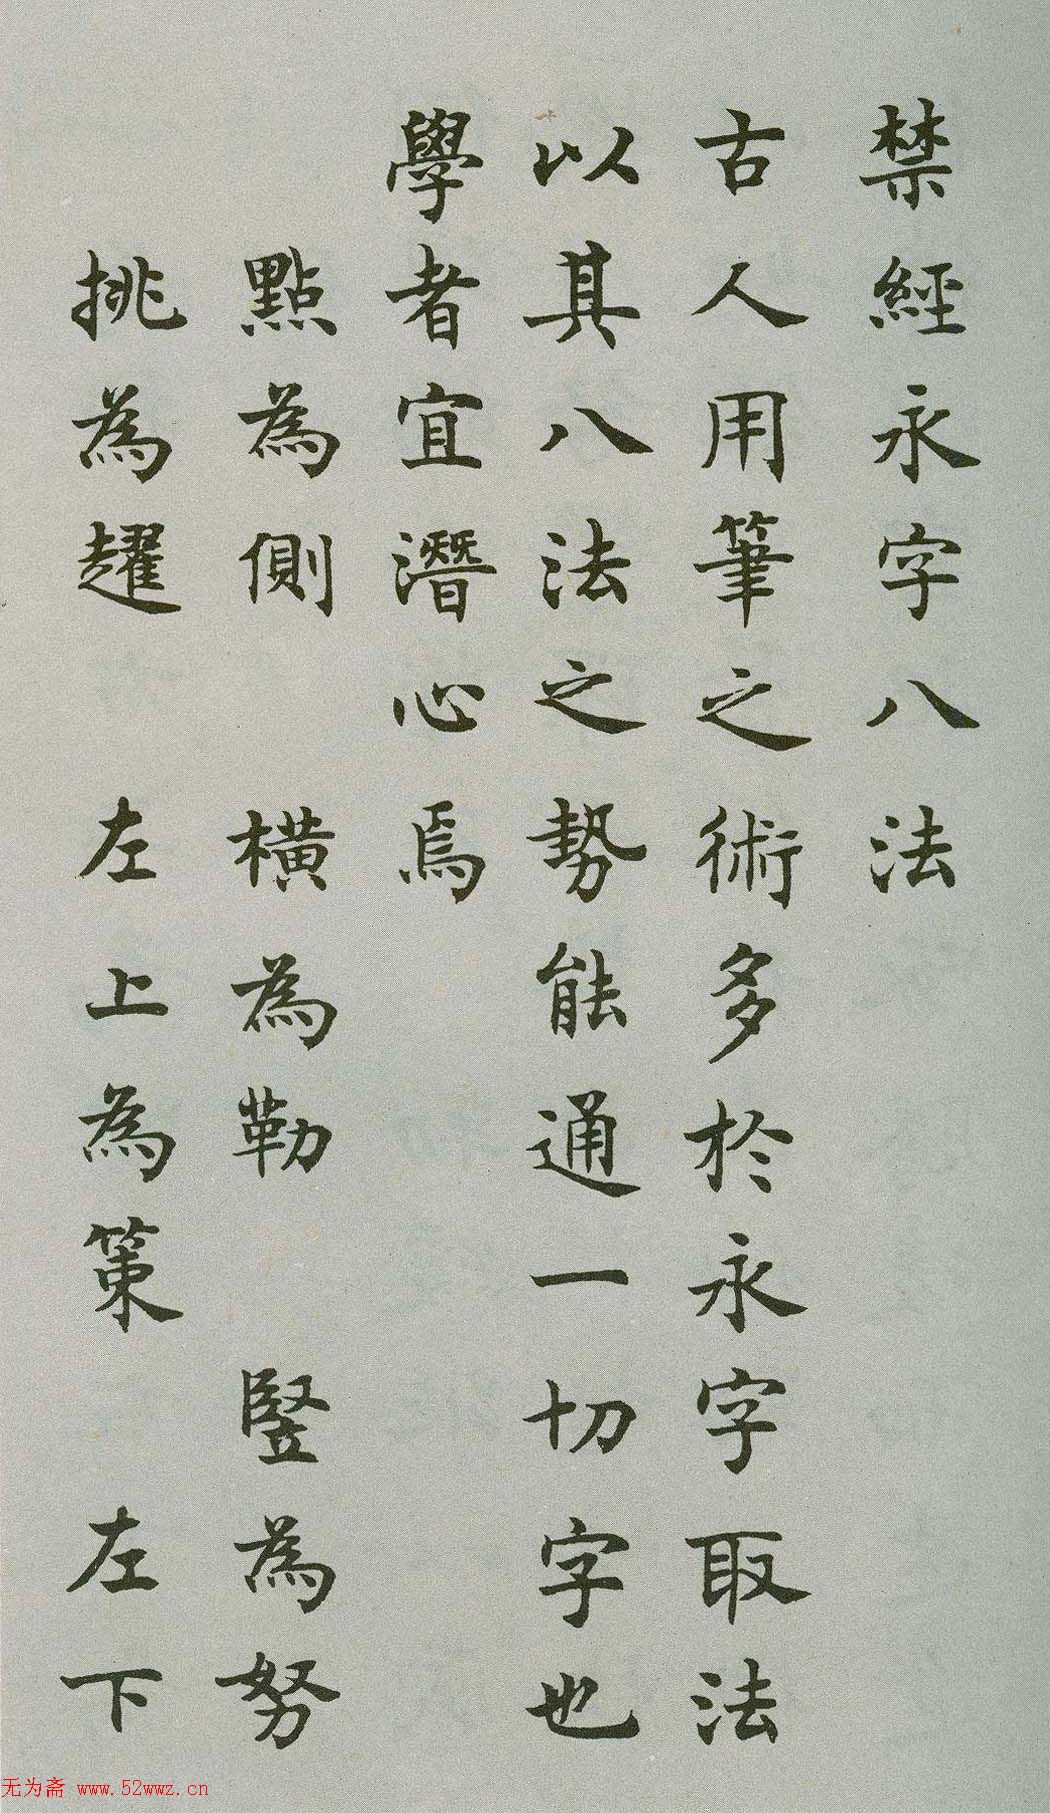 禁經永字八法
古人用筆之術多於永字取法
以其八法之勢能通一切字也
學者宜潛心焉
點為側 橫為勒 竪為努
挑為趯 左上為策 左下
无为斋 www.52wwz.cn